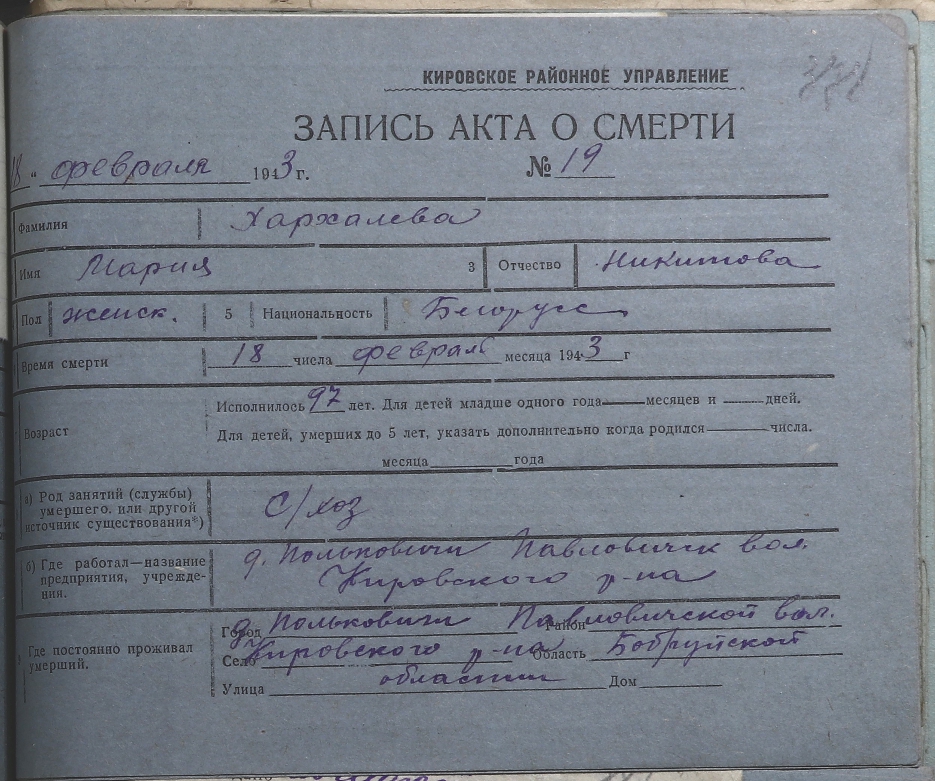 КИРОВСКОЕ РАЙОННОЕ УПРАВЛЕНИЕ
ЗАПИСЬ АКТА О СМЕРТИ
18 " февраля 1943 г. № 19
Фамилия Хархалева
Имя Мария 3 Отчество Никитова
Пол женск. 5 Национальность Белорусс
Время смерти 18 числа февраль месяца 1943 г
Возраст Исполнилось 97 лет. Для детей младше одного года — месяцев и — дней.
Для детей, умерших до 5 лет, указать дополнительно когда родился числа.
месяца года
а) Род занятий (службы) умершего, или другой источник существования*) С/хоз
б) Где работал—название предприятия, учреждения. д. Польковичи Павловичск вол.
Кировского р-на
Где постоянно проживал умерший. Город д. Польковичи Район Павловичской вол.
Село Кировского р-на Область Бобруйской
Улица области Дом